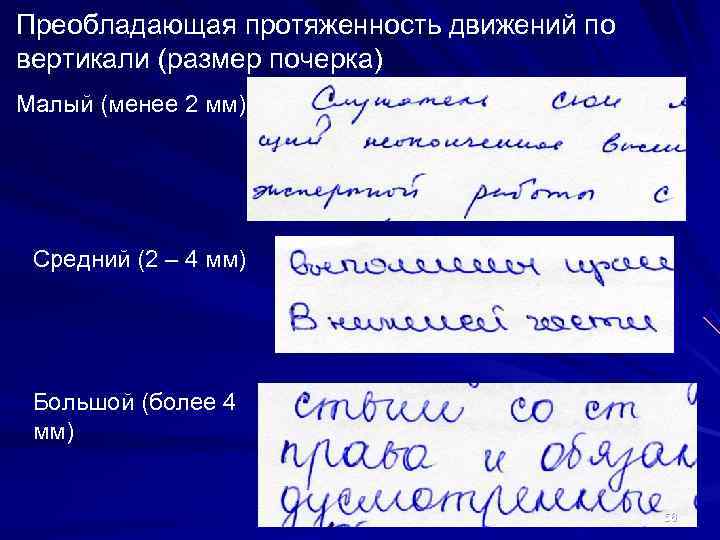 Преобладающая протяженность движений по
вертикали (размер почерка)
Малый (менее 2 мм)
Слушатель свои
щий неоконченное высш
экспертной работы с
Средний (2 – 4 мм)
выполнены
В нижней части
Большой (более 4
мм)
ствий со ст
права и обязан
дусмотренные
58